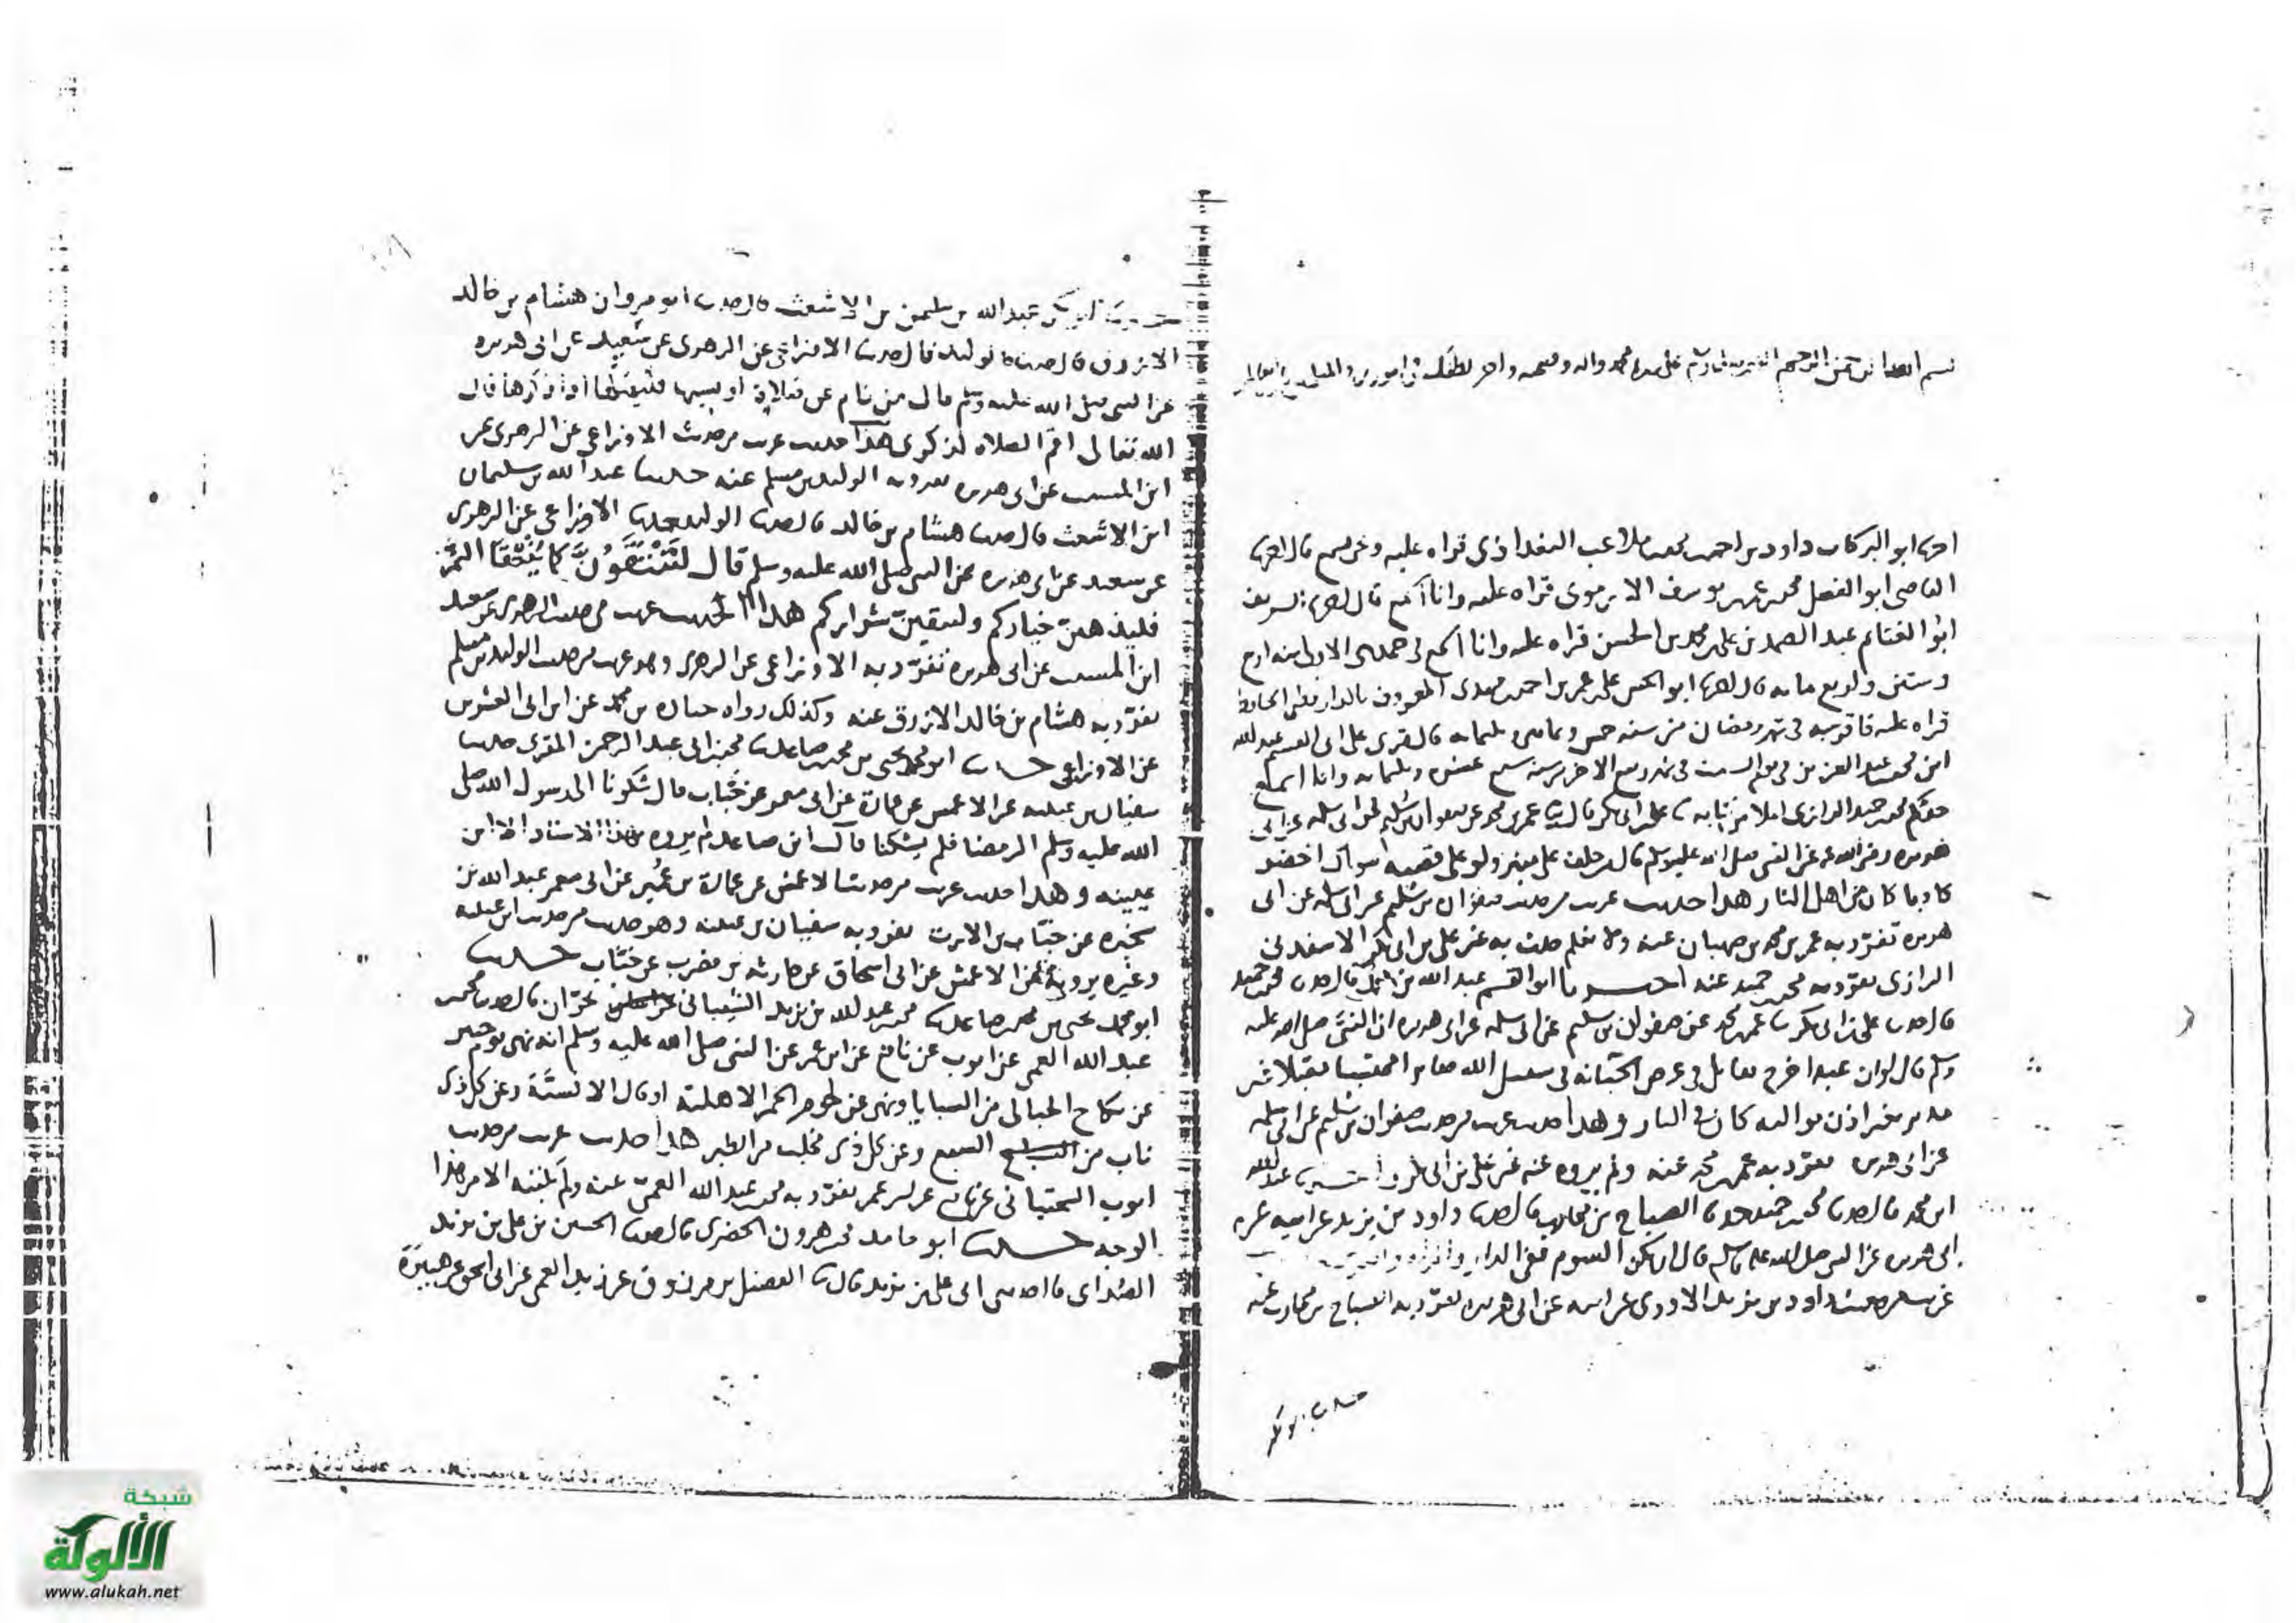 بسم الله الرحمن الرحيم على سيدنا محمد واله وصحبه لطفك في
اخبرنا ابو البركات داود بن احمد بن محمد بن ملاعب البغداذي قراه عليه ونحن نسمع قال اخبرنا
القاضي ابو الفضل محمد بن عمر بن يوسف الارموى قراه عليه وانا اسمع قال اخبرنا الشريف
ابو الغنائم عبد الصمد بن علي بن محمد بن الحسن قراه عليه وانا اسمع في جمادى الاولى سنه اربع
وستين واربع مايه قال اخبرنا ابو الحسن علي بن عمر بن احمد بن مهدى المعروف بالدارقطني الحافظ
قراه عليه فاقر به في شهر رمضان من سنه خمس وثمانين وثلثمايه قال قرى على ابي القسم عبد الله
ابن محمد بن عبد العزيز في شهر ربيع الاخر من سنه سبع عشره وثلثمايه وانا اسمع
حدثكم محمد بن حميد الرازى املا من كتابه علي بن ابي بكر قال عمر بن محمد عن صفوان بن سليم عن ابي سلمه عن ابي
هريره رضي الله عنه عن النبي صلى الله عليه وسلم قال من حلف على منبرى ولو على قضيب سواك اخضر
كاذبا كان من اهل النار هذا حديث غريب من حديث صفوان بن سليم عن ابي سلمه عن ابي
هريره تفرد به عمر بن محمد بن صهبان عنه ولا نعلم حدث به غير علي بن ابي بكر الاسفدني
الرازى تفرد به محمد بن حميد عنه ابو القسم عبد الله بن محمد قال حدثنا محمد بن حميد
قال حدثنا علي بن ابي بكر عمر بن محمد عن صفوان بن سليم عن ابي سلمه عن ابي هريره ان النبي صلى الله عليه
وسلم قال لو ان عبدا خرج يقاتل في سبيل الله صابرا محتسبا مقبلا غير
مدبر بغير اذن والديه كان في النار وهذا حديث غريب من حديث صفوان بن سليم عن ابي سلمه
عن ابي هريره تفرد به عمر بن محمد عنه ولم يروه عنه غير علي بن ابي بكر حدثنا عبد الله
ابن محمد قال حدثنا محمد بن حميد حدثنا الصباح بن محارب قال حدثنا داود بن يزيد عن ابيه عن
ابي هريره عن النبي صلى الله عليه وسلم قال ان يكن الشوم ففي الدار
غريب من حديث داود بن يزيد الاودى عن ابيه عن ابي هريره تفرد به الصباح بن محارب عنه
حدثنا ابو بكر
حدثنا ابو بكر عبد الله بن سليمن بن الاشعث قال حدثنا ابو مروان هشام بن خالد
الازرق قال حدثنا الوليد قال حدثنا الاوزاعي عن الزهرى عن سعيد عن ابي هريره
عن النبي صلى الله عليه وسلم قال من نام عن صلاة او نسيها فليصلها اذا ذكرها قال
الله تعالى اقم الصلاه لذكرى هذا حديث غريب من حديث الاوزاعي عن الزهرى عن
ابن المسيب عن ابي هريره تفرد به الوليد بن مسلم عنه حدثنا عبد الله بن سليمان
ابن الاشعث قال حدثنا هشام بن خالد قال حدثنا الوليد حدثنا الاوزاعي عن الزهرى
عن سعيد عن ابي هريره عن النبي صلى الله عليه وسلم قال لَتُنْتَقَوُنَّ كما يُنْتَقَا التمر
فليذهبن خياركم وليبقين شراركم هذا الحديث غريب من حديث الزهرى عن سعيد
ابن المسيب عن ابي هريره تفرد به الاوزاعي عن الزهرى وهو غريب من حديث الوليد بن مسلم
تفرد به هشام بن خالد الازرق عنه وكذلك رواه عن ابن ابي العشرين
عن الاوزاعي حدثنا ابو محمد يحيى بن محمد بن صاعد حدثنا محمد بن ابي عبد الرحمن المقرى حدثنا
سفيان بن عيينه عن الاعمش عن عمارة عن ابي معمر عن خباب قال شكونا الى رسول الله صلى
الله عليه وسلم الرمضا فلم يشكنا قال ابن صاعد لم يروه بهذا الاسناد الا ابن
عيينه وهذا حديث غريب من حديث الاعمش عن عمارة بن عمير عن ابي معمر عبد الله بن
سخبره عن خباب بن الارت تفرد به سفيان بن عيينه وهو حديث من حديث ابن عيينه
وغيره يرويه عن الاعمش عن ابي اسحاق عن حارثه بن مضرب عن خباب حدثنا
ابو محمد يحيى بن محمد بن صاعد حدثنا محمد بن عبد الله بن يزيد الشيباني بحران قال حدثنا محمد بن
عبد الله العمي عن ايوب عن نافع عن ابن عمر عن النبي صلى الله عليه وسلم انه نهى يوم خيبر
عن نكاح الحبالى من السبايا ونهى عن لحوم الحمر الاهلية او قال الانسية وعن كل ذى
ناب من السبع وعن كل ذى مخلب من الطير هذا حديث غريب من حديث
ايوب السختياني عن نافع عن ابن عمر تفرد به محمد بن عبد الله العمي عنه ولم نكتبه الا من هذا
الوجه حدثنا ابو حامد محمد بن هرون الحضرى قال حدثنا الحسين بن علي بن يزيد
الصدائي قال حدثني ابي علي بن يزيد قال حدثنا الفضيل بن مرزوق عن زيد العمي عن ابي اسحق عن هبيرة
شبكة
الألوكة
www.alukah.net